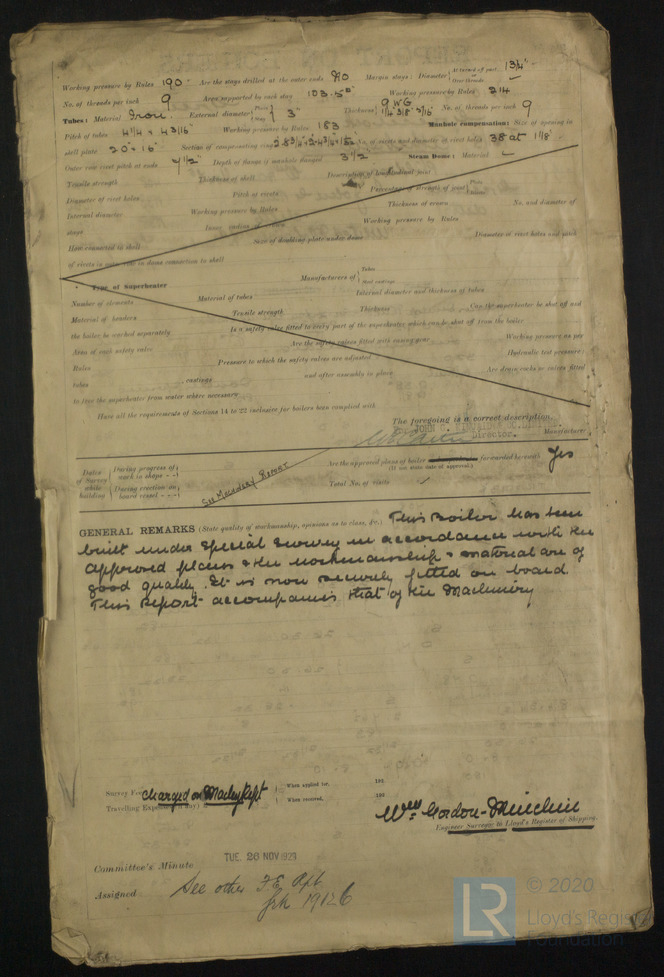 Working pressure by Rules 190 Are the stays drilled at the outer ends No Margin stays: Diameter { At turned off part, or Over threads 1 3/4"
No. of threads per inch 9 Area supported by each stay 103.5 Working pressure by Rules 214
Tubes: Material Iron External diameter { Plain Stay 3" Thickness { 9 WG 1/4 3/16 No. of threads per inch 9
Pitch of tubes 4 1/4 x 4 3/16" Working pressure by Rules 183 Manhole compensation: Size of opening in
shell plate 20" x 16" Section of compensating ring No. of rivets and diameter of rivet holes 38 at 1 1/8"
Outer row rivet pitch at ends 7 1/2" Depth of flange if manhole flanged 3 1/2 Steam Dome: Material
Tensile strength Thickness of shell Description of longitudinal joint
Diameter of rivet holes Pitch of rivets Percentage of strength of joint { Plate Rivets
Internal diameter Working pressure by Rules Thickness of crown No. and diameter of
stays Inner radius of crown Working pressure by Rules
How connected to shell Size of doubling plate under dome Diameter of rivet holes and pitch
of rivets in outer row in dome connection to shell
Type of Superheater Manufacturers of { Tubes Steel castings
Number of elements Material of tubes Internal diameter and thickness of tubes
Material of headers Tensile strength Thickness Can the superheater be shut off and
the boiler be worked separately Is a safety valve fitted to every part of the superheater which can be shut off from the boiler
Area of each safety valve Are the safety valves fitted with easing gear Working pressure as per
Rules Pressure to which the safety valves are adjusted Hydraulic test pressure:
tubes castings and after assembly in place Are drain cocks or valves fitted
to free the superheater from water where necessary
Have all the requirements of Sections 14 to 22 inclusive for boilers been complied with
The foregoing is a correct description,
Director. Manufacturer.
Dates of Survey while building { During progress of work in shops - - During erection on board vessel - - - See Machinery Report Are the approved plans of boiler forwarded herewith Yes
(If not state date of approval.)
Total No. of visits
GENERAL REMARKS (State quality of workmanship, opinions as to class, &c.) This Boiler has been
built under Special Survey in accordance with the
approved plans & the workmanship & material are of
good quality. It is now securely fitted on board.
This Report accompanies that of the Machinery
Survey Fee charged on Machy Rept When applied for, 192
Travelling Expenses (if any) £ When received, 192
Wm Gordon-
Engineer Surveyor to Lloyd's Register of Shipping.
Committee's Minute TUE. 26 NOV 1929
Assigned See other F.E. Rpt.
© 2020
Lloyd's Register
Foundation
LR